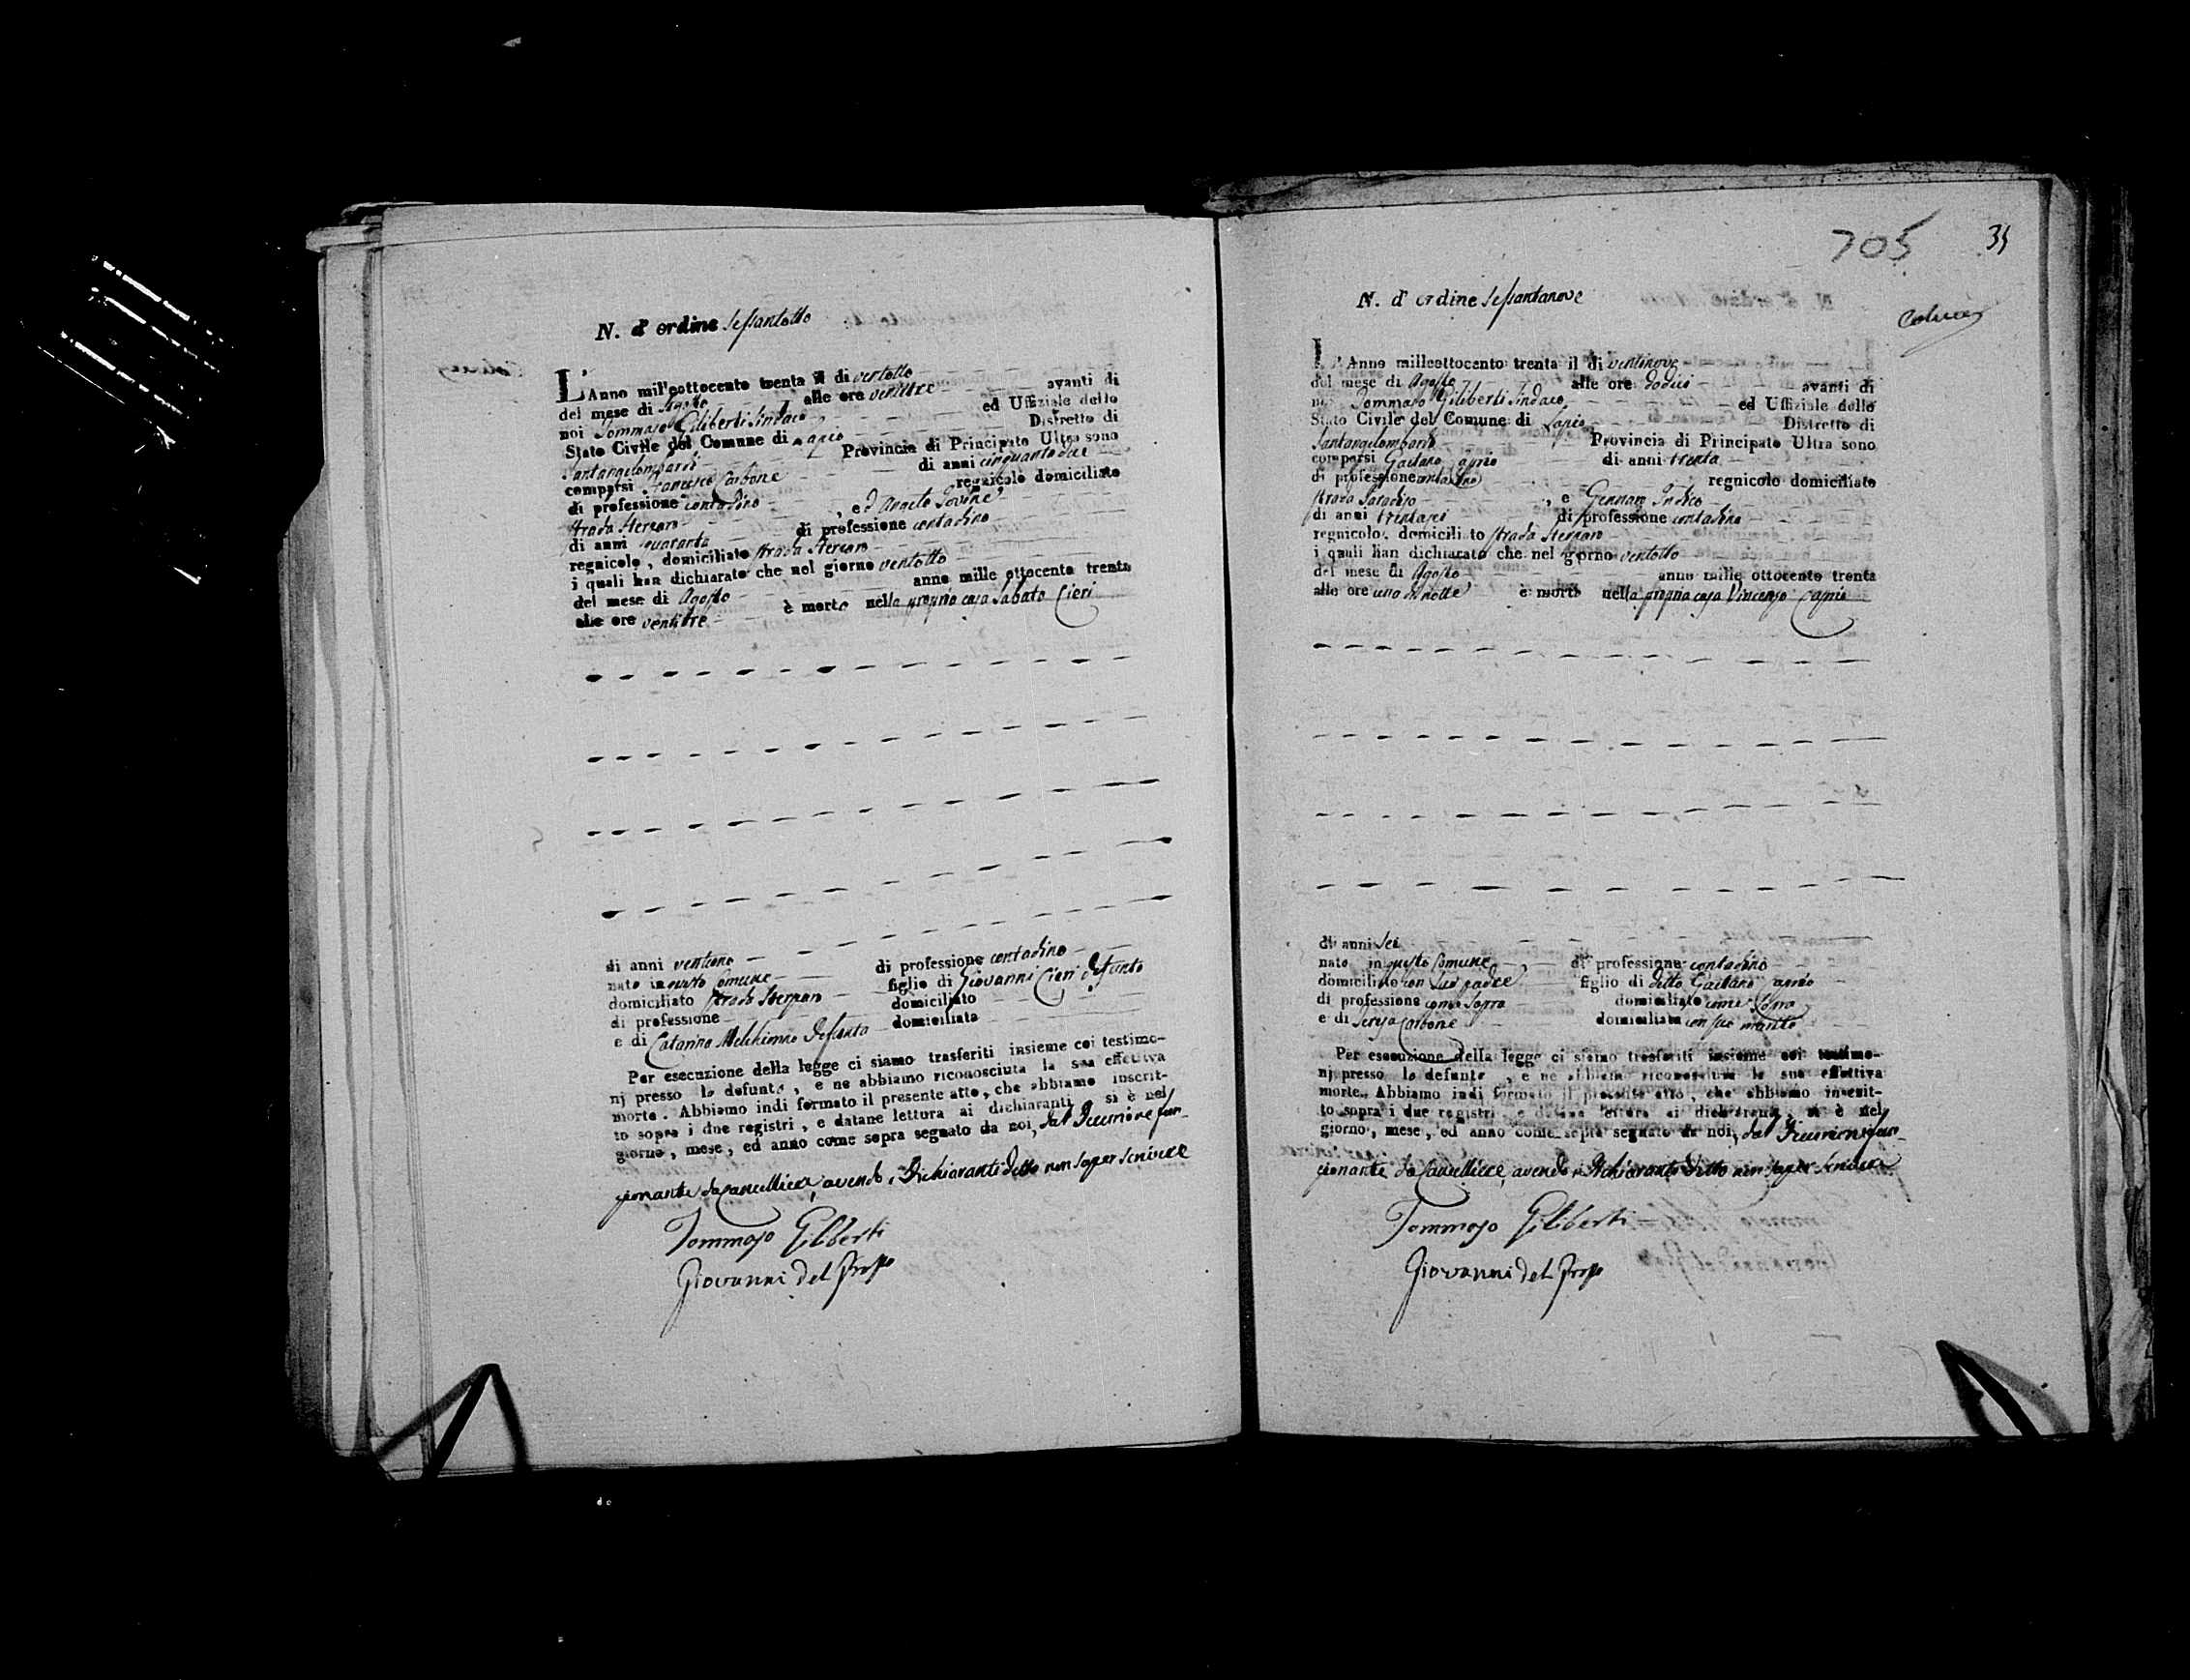 N. d' ordine Sessantotto
L'Anno mil'eottocento trenta il di ventotto
del mese di Agosto alle ore ventitre avanti di
noi Tommaso Giliberti Sindaco ed Uffiziale dello
Stato Civile del Comune di Lapio Distretto di
Santangelombardi Provincia di Principato Ultra sono
comparsi Francesco Carbone di anni cinquantadue
di professione contadino regnicolo domiciliato
strada Sterparo , ed Angelo Iovine
di anni quaranta di professione contadino
regnicolo , domiciliato strada Sterparo
i quali han dichiarato che nel giorno ventotto
del mese di Agosto anno mille ottocento trenta
alle ore ventitre è morto nella propria casa Sabato Cieri
di anni ventuno di professione contadino
nato in questo Comune figlio di Giovanni Cieri defunto
domiciliato strada Sterparo domiciliato
di professione domiciliata
e di Catarina Melchionno defunta
Per esecuzione della legge ci siamo trasferiti insieme coi testimo-
nj presso lo defunto , e ne abbiamo riconosciuta la sua effettiva
morte . Abbiamo indi formato il presente atto , che abbiamo inscrit-
to sopra i due registri , e datane lettura ai dichiaranti si è nel
giorno , mese , ed anno come sopra segnato da noi, dal Decurione fun-
zionante da Cancelliere, avendo i Dichiaranti detto non saper scrivere
Tommaso Giliberti
Giovanni del Prosso
705
35
N. d' ordine Sessantanove
Colucci
L'Anno milleottocento trenta il di ventinove
del mese di Agosto alle ore dodici avanti di
noi Tommaso Giliberti Sindaco ed Uffiziale dello
Stato Civile del Comune di Lapio Distretto di
Santangelombardi Provincia di Principato Ultra sono
comparsi Gaetano Caprio di anni trenta
di professione contadino regnicolo domiciliato
strada Paradiso , e Gennaro Indico
di anni trentasei di professione contadino
regnicolo, domiciliato strada Sterparo
i quali han dichiarato che nel giorno ventotto
del mese di Agosto anno mille ottocento trenta
alle ore uno di notte è morto nella propria casa Vincenzo Caprio
di anni sei
nato in questo Comune di professione contadino
domiciliato con suo padre figlio di detto Gaetano Caprio
di professione come sopra domiciliato come sopra
e di Teresa Carbone domiciliata con suo marito
Per esecuzione della legge ci siamo trasferiti insieme coi testimo-
nj presso lo defunto , e ne abbiamo riconosciuta la sua effettiva
morte. Abbiamo indi formato il presente atto , che abbiamo inscrit-
to sopra i due registri , e datane lettura ai dichiaranti, si è nel
giorno , mese , ed anno come sopra segnato da noi, dal Decurione fun-
zionante da Cancelliere, avendo i Dichiaranti detto non saper scrivere
Tommaso Giliberti
Giovanni del Prosso